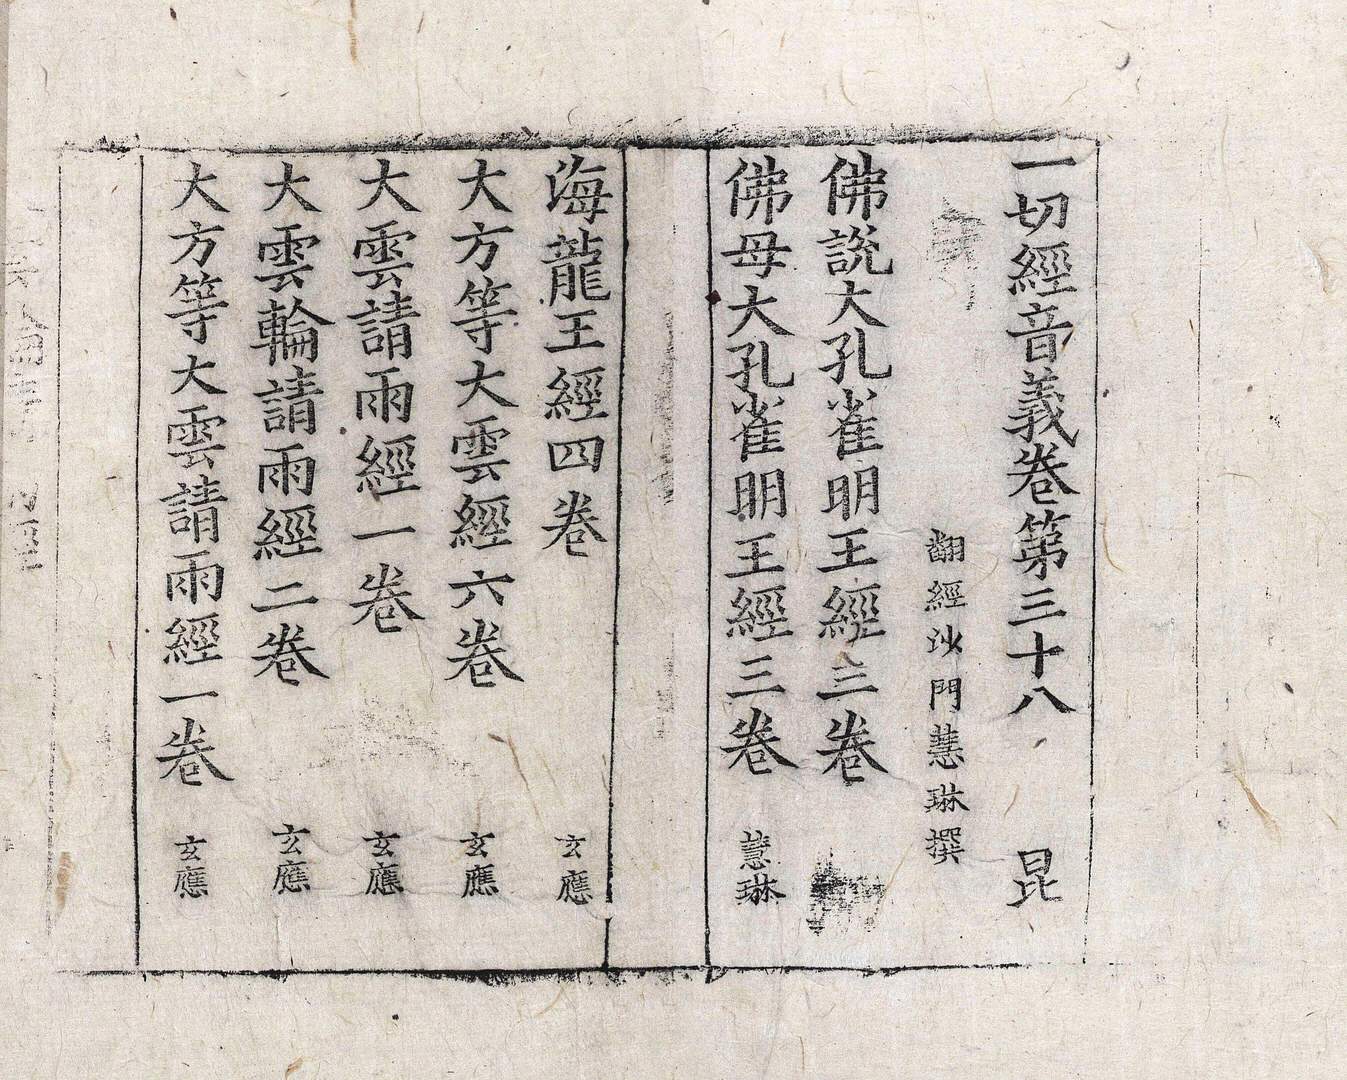 一切經音義卷第三十八 昆
翻經沙門慧琳撰
佛說大孔雀明王經三卷
佛母大孔雀明王經三卷 慧琳
海龍王經四卷 玄應
大方等大雲經六卷 玄應
大雲請雨經一卷 玄應
大雲輪請雨經二卷 玄應
大方等大雲請雨經一卷 玄應